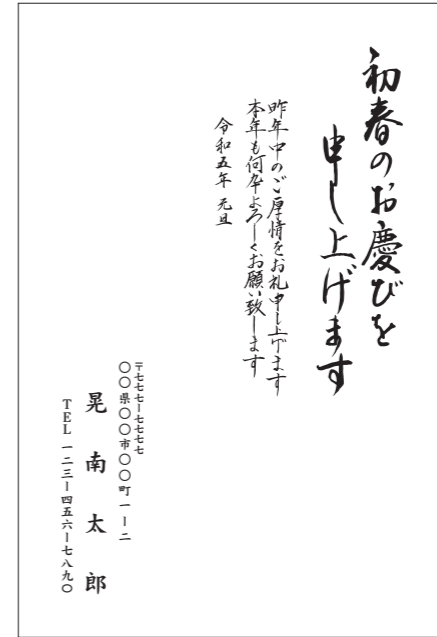 初春のお慶びを
申し上げます
昨年中のご厚情をお礼申し上げます
本年も何卒よろしくお願い致します
令和五年 元旦
〒七七七ー七七七七
〇〇県〇〇市〇〇町一ー二
晃南太郎
TEL 一二三ー四五六ー七八九〇